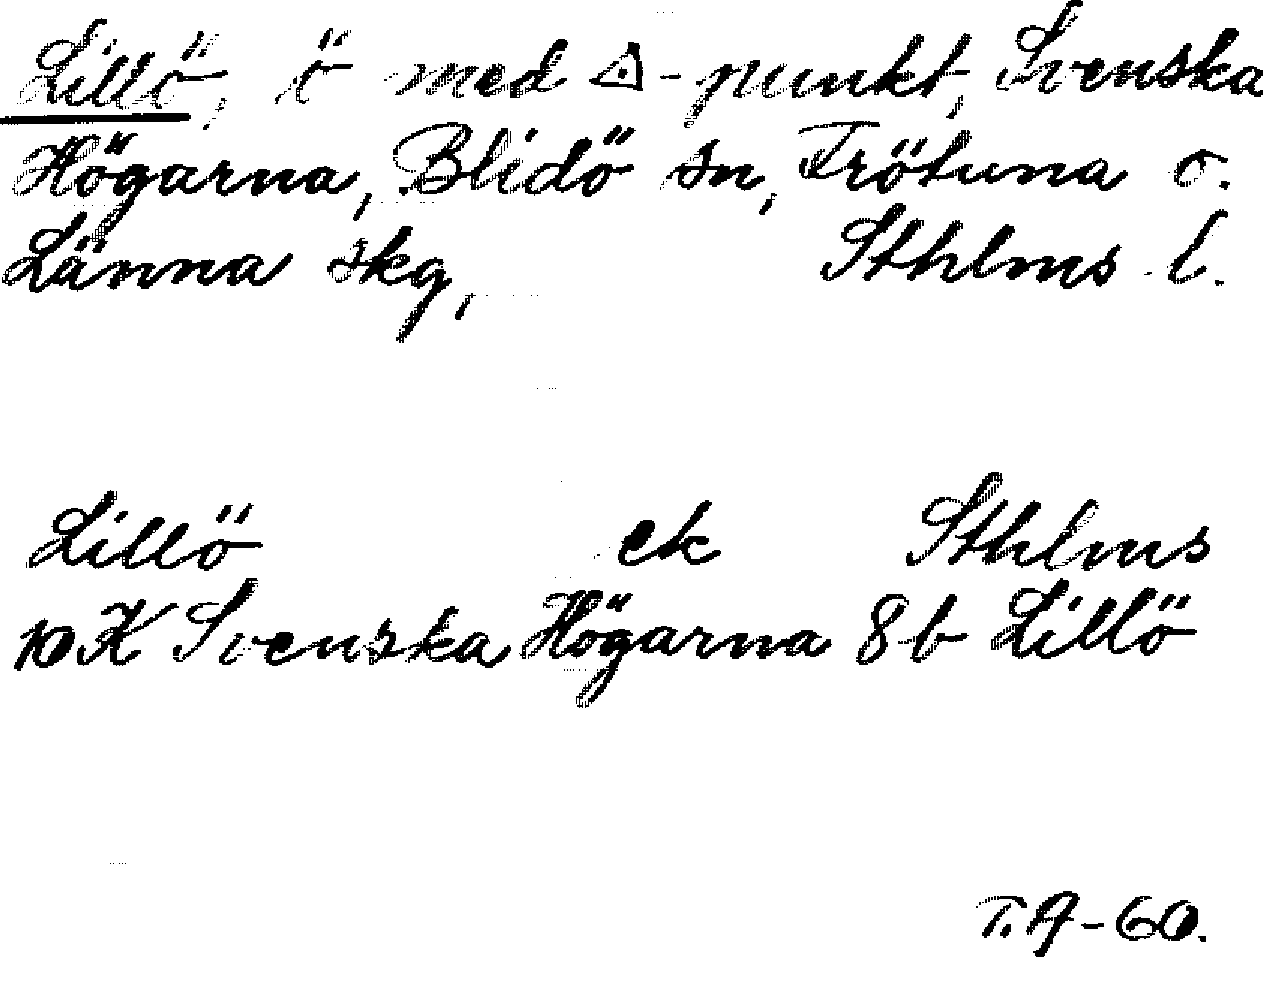 Lillö, ö med ◬-punkt, Svenska
Högarna, Blidö sn, Frötuna o.
Länna skg, Sthlms l.
Lillö ek Sthlms
10 K Svenska Högarna 8b Lillö
T.A-60.